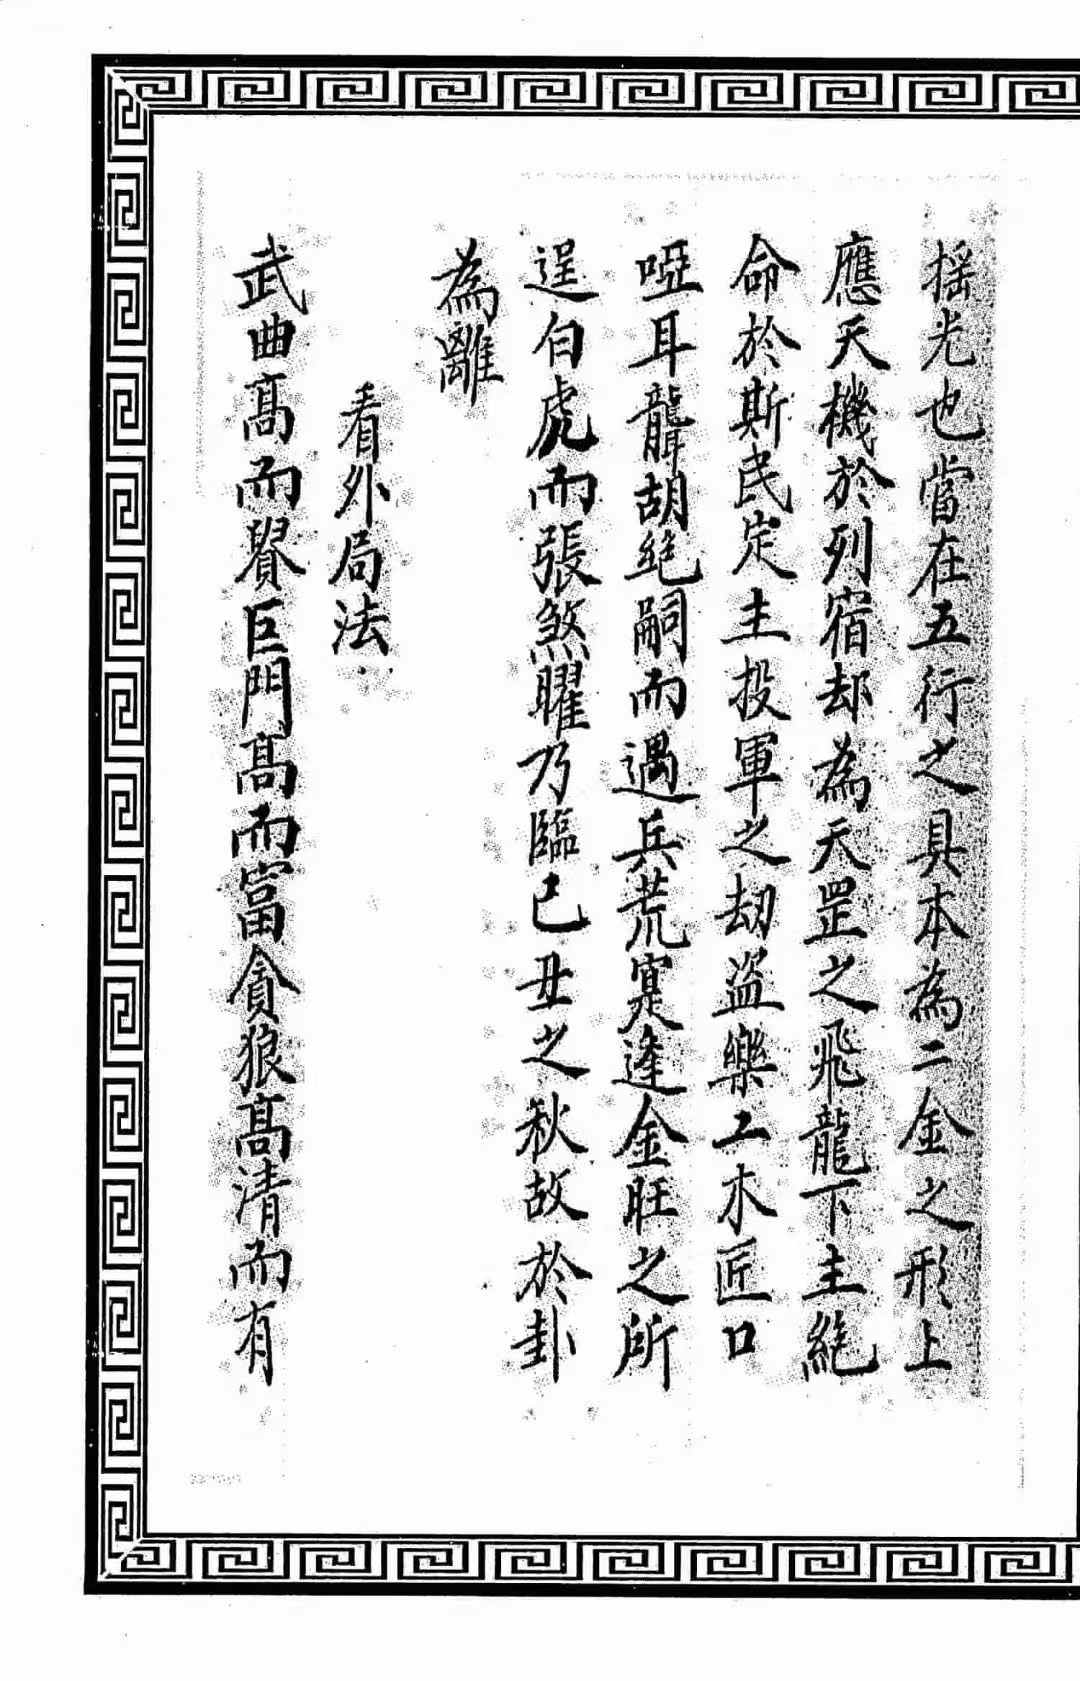 搖光也當在五行之具本為二金之形上
應天機於列宿却為天罡之飛龍下主絕
命於斯民定主投軍之劫盜樂工木匠口
啞耳聾胡絕嗣而遇兵荒寔逢金旺之所
逞白虎而張煞曜乃臨己丑之秋故於卦
為離
看外局法
武曲髙而貴巨門髙而富貪狼髙清而有